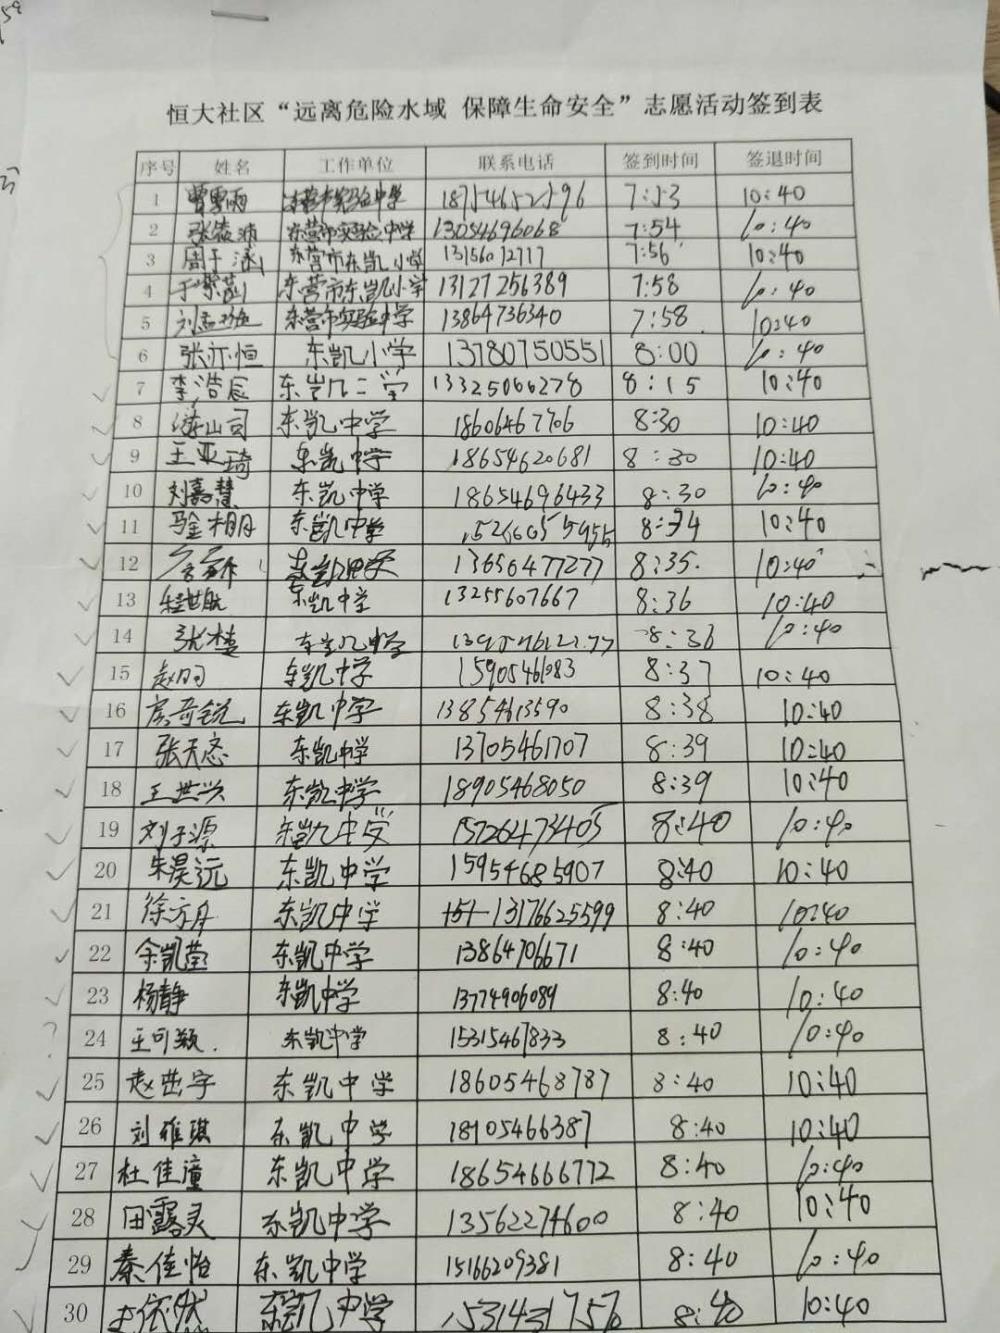 恒大社区“远离危险水域 保障生命安全”志愿活动签到表
序号 姓名 工作单位 联系电话 签到时间 签退时间
1 曹雪雨 东营市实验中学 18754652596 7:53 10:40
2 东营市实验中学 13054696068 7:54 10:40
3 周子涵 东营市东凯小学 13156072717 7:56 10:40
4 于紫菡 东营市东凯小学 13127256389 7:58 10:40
5 刘孟 东营市实验中学 13864736340 7:58 10:40
6 张亦恒 东凯小学 13780750551 8:00 10:40
7 李浩辰 东凯二学 13325066278 8:15 10:40
8 东凯中学 18606467706 8:30 10:40
9 王亚琦 东凯中学 18654620681 8:30 10:40
10 刘嘉慧 东凯中学 18654696433 8:30 10:40
11 东凯中学 8:34 10:40
12 13656477277 8:35 10:40
13 东凯中学 13255607667 8:36 10:40
14 张楚 东凯中学 8:36 10:40
15 东凯中学 15905461083 8:37 10:40
16 房奇锐 东凯中学 13854613590 8:38 10:40
17 张天恣 东凯中学 13705461707 8:39 10:40
18 王世兴 东凯中学 18905468050 8:39 10:40
19 刘子源 东凯中学 15726473405 8:40 10:40
20 朱昊远 东凯中学 15954685907 8:40 10:40
21 徐方丹 东凯中学 13176625599 8:40 10:40
22 余凯莹 东凯中学 13864706671 8:40 10:40
23 杨静 东凯中学 13774906089 8:40 10:40
24 王可颖 东凯中学 15315467833 8:40 10:40
25 赵世宇 东凯中学 18605468787 8:40 10:40
26 刘雅琪 东凯中学 18105466387 8:40 10:40
27 杜佳潼 东凯中学 18654666772 8:40 10:40
28 田露灵 东凯中学 13562274600 8:40 10:40
29 秦佳怡 东凯中学 15166209381 8:40 10:40
30 依然 东凯中学 15314317576 8:40 10:40